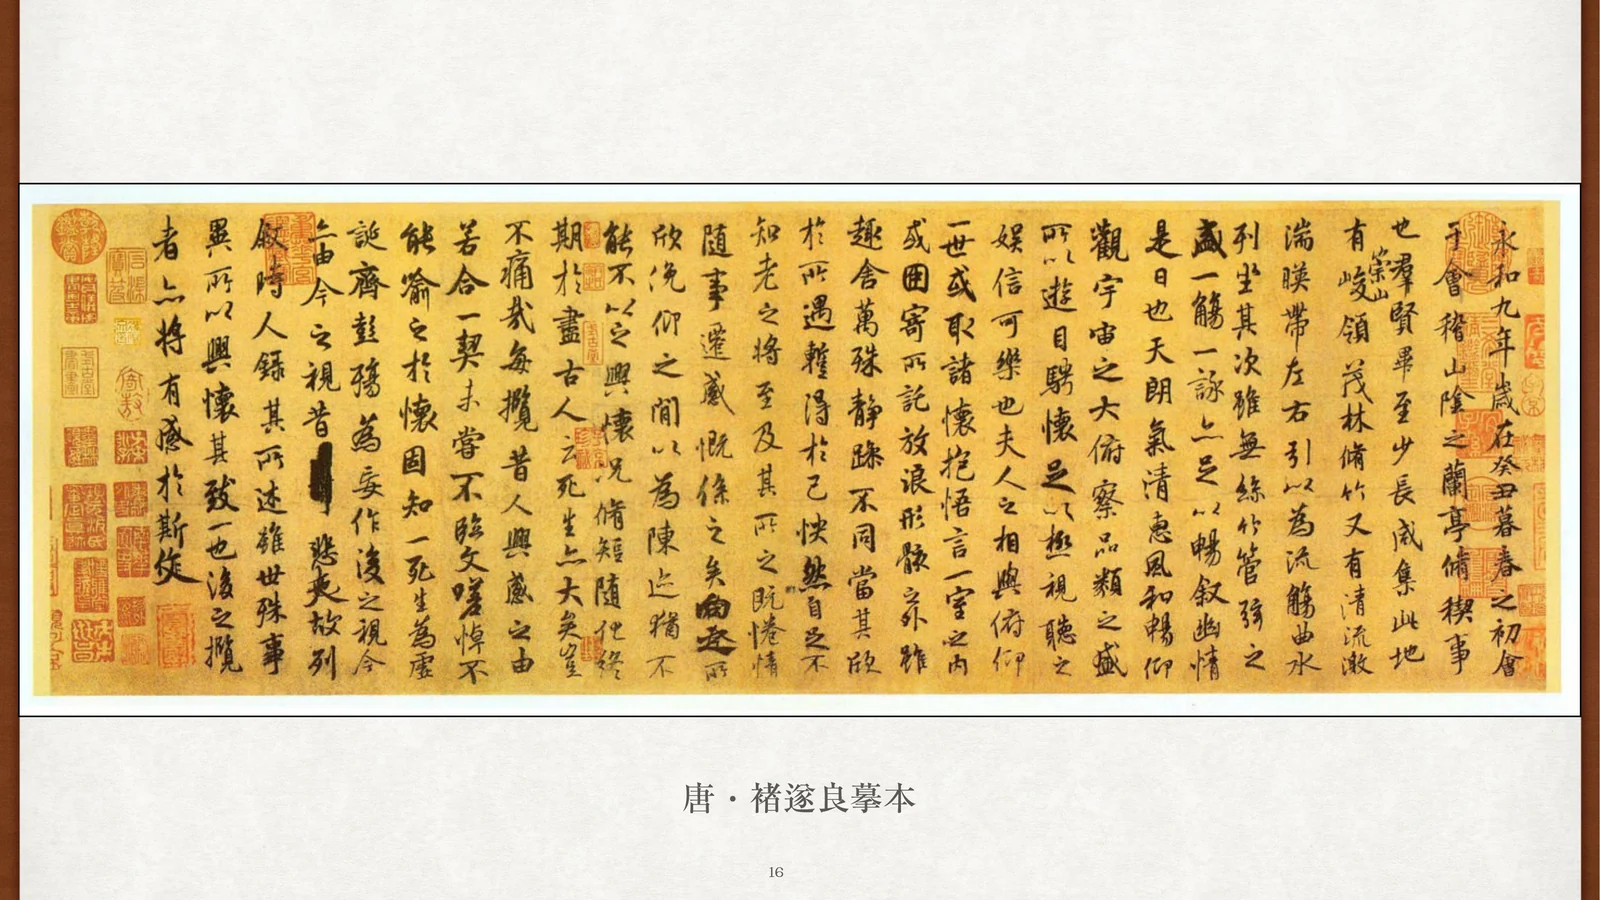 永和九年歲在癸丑暮春之初會
于會稽山陰之蘭亭脩稧事
也羣賢畢至少長咸集此地
有崇山峻領茂林脩竹又有清流激
湍暎帶左右引以為流觴曲水
列坐其次雖無絲竹管弦之
盛一觴一詠亦足以暢叙幽情
是日也天朗氣清惠風和暢仰
觀宇宙之大俯察品類之盛
所以遊目騁懷足以極視聽之
娛信可樂也夫人之相與俯仰
一世或取諸懷抱悟言一室之內
或因寄所託放浪形骸之外雖
趣舍萬殊静躁不同當其欣
於所遇蹔得於己怏然自足不
知老之將至及其所之既惓情
隨事遷感慨係之矣向之所
欣俛仰之閒以為陳迹猶不
能不以之興懷況脩短隨化終
期於盡古人云死生亦大矣豈
不痛哉每攬昔人興感之由
若合一契未嘗不臨文嗟悼不
能喻之於懷固知一死生為虛
誕齊彭殤為妄作後之視今
亦由今之視昔悲夫故列
叙時人錄其所述雖世殊事
異所以興懷其致一也後之攬
者亦將有感於斯文
唐・褚遂良摹本
16